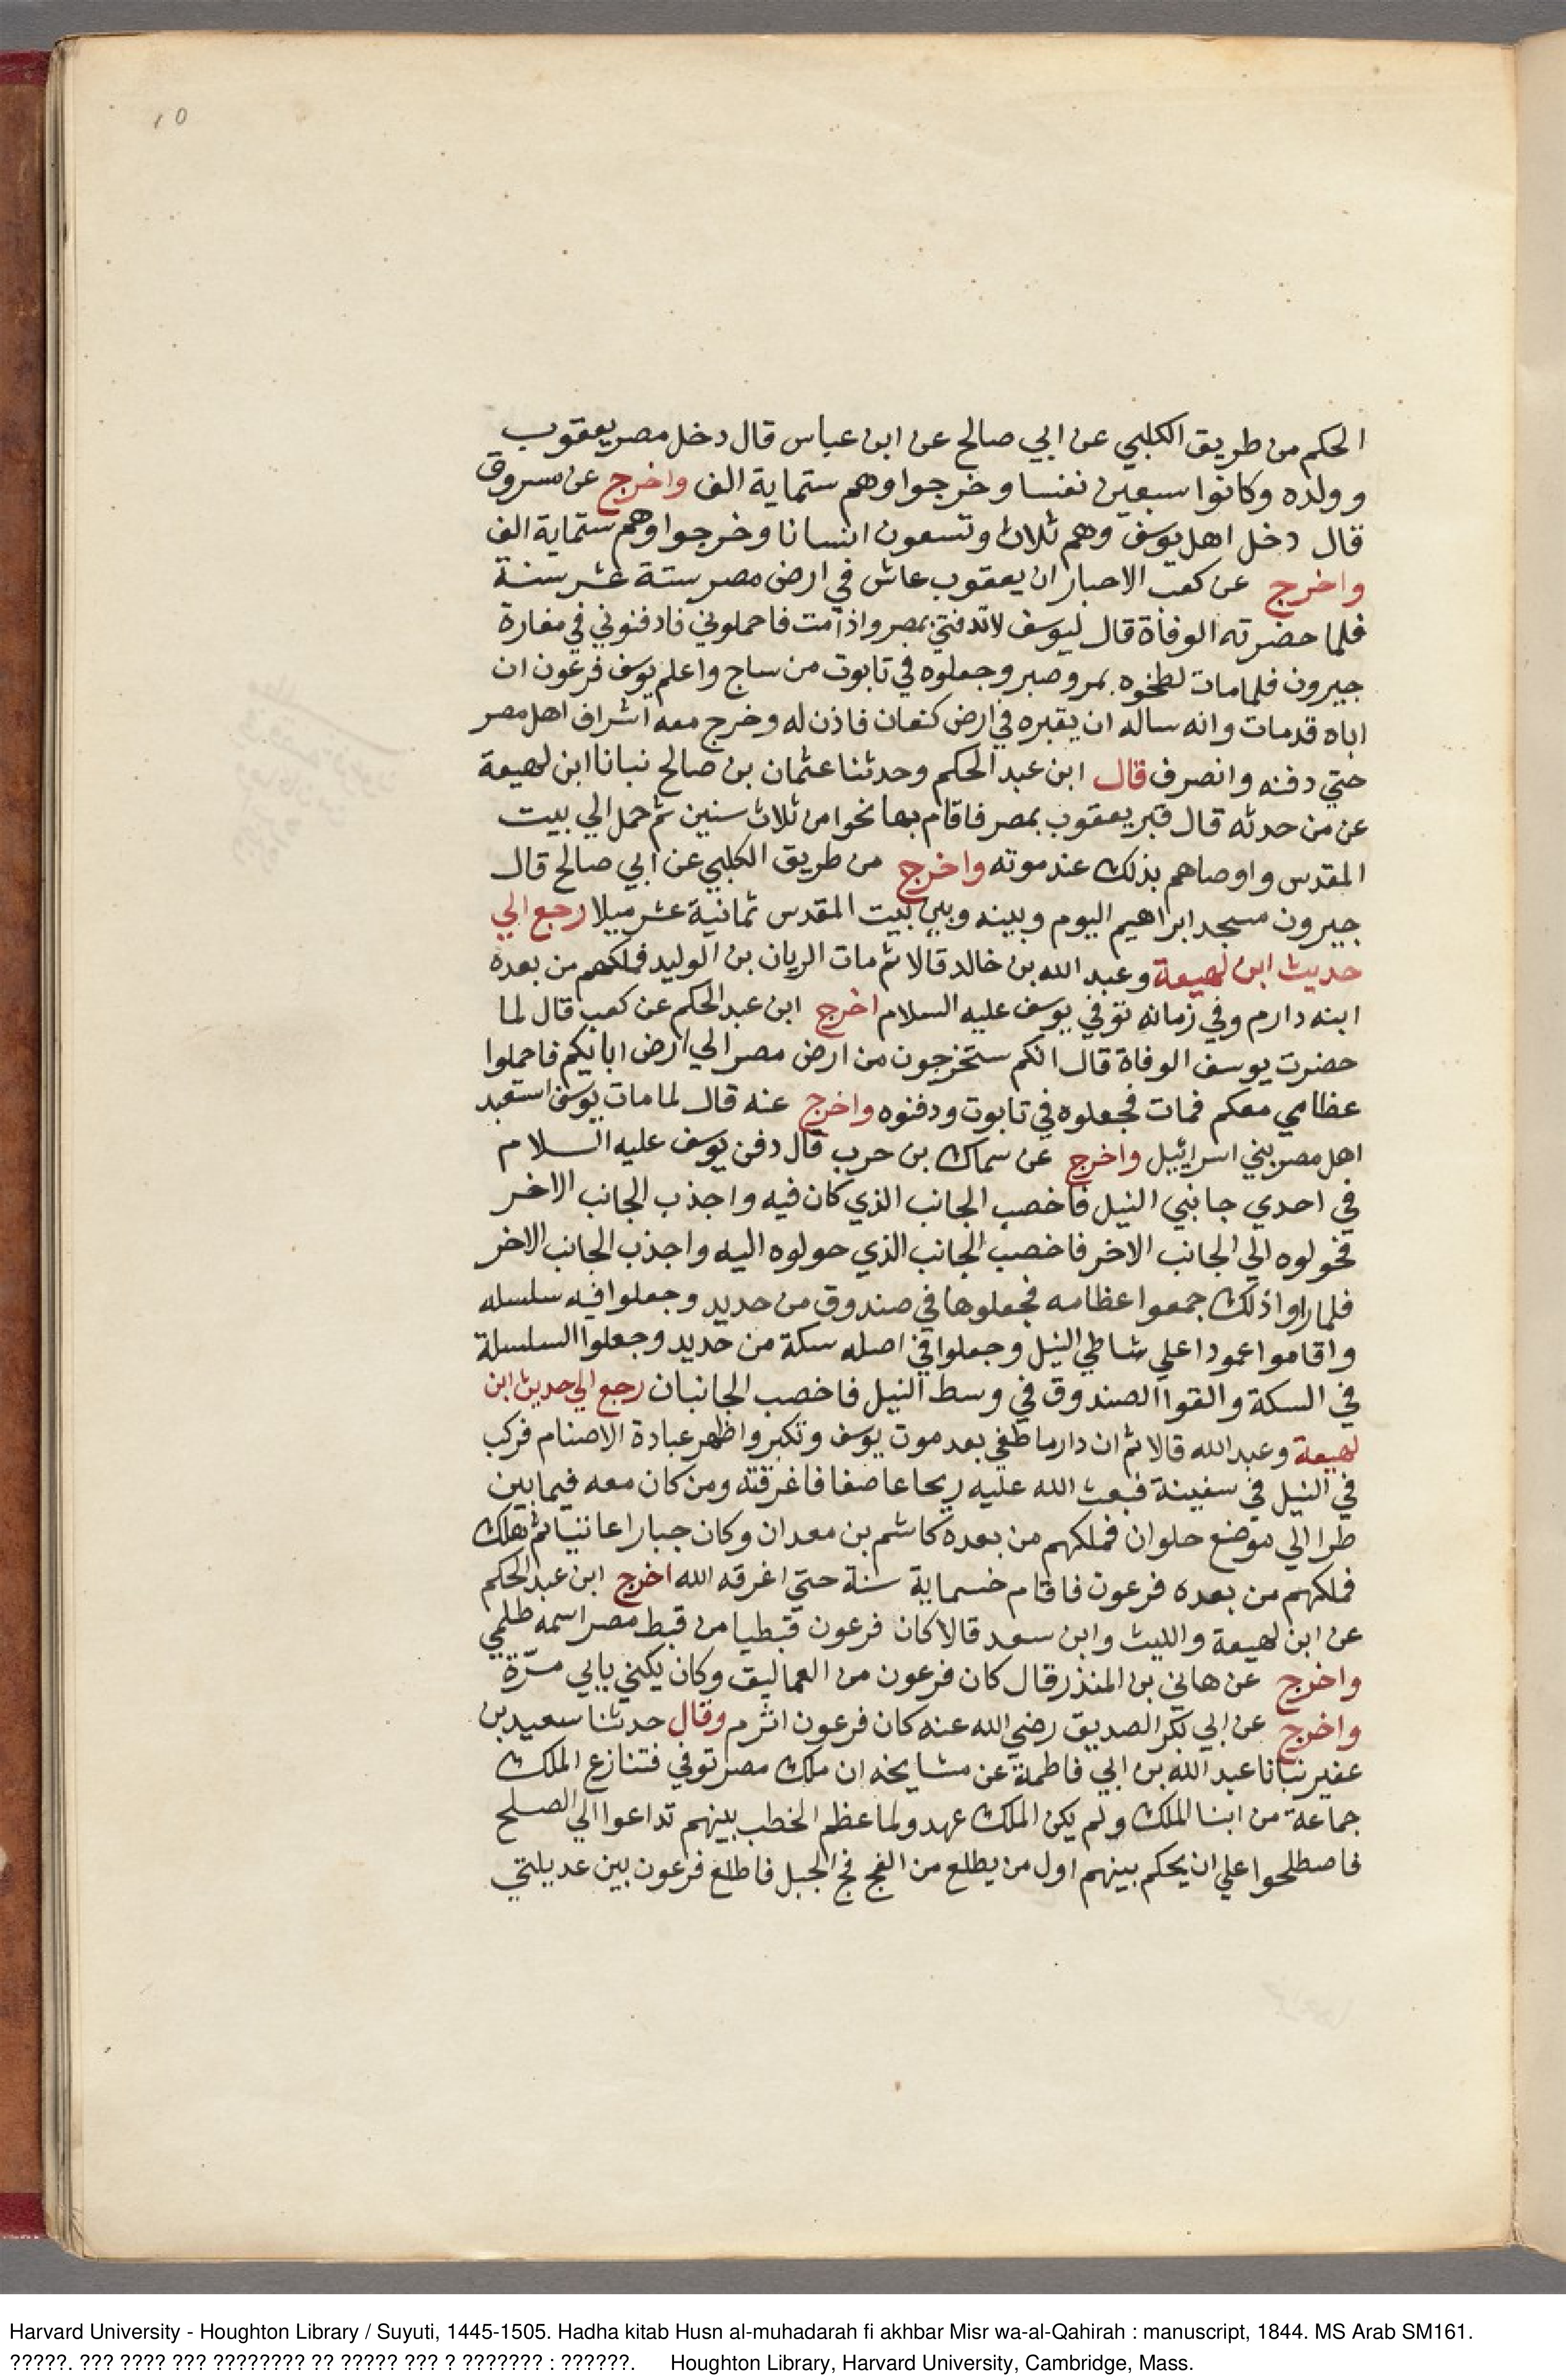 10
الحكم من طريق الكلبي عن ابي صالح عن ابن عباس قال دخل مصر يعقوب
وولده وكانوا سبعين نفسا وخرجوا وهم ستماية الف واخرج عن مسروق
قال دخل اهل يوسف وهم ثلاث وتسعون انسانا وخرجوا وهم ستماية الف
واخرج عن كعب الاحبار ان يعقوب عاش في ارض مصر ستة عشر سنة
فلما حضرته الوفاة قال ليوسف لا تدفني بمصر واذا مت فاحملوني فادفنوني في مغارة
جبرون فلما مات لطخوه بمر وصبر وجعلوه في تابوت من ساج واعلم يوسف فرعون ان
اباه قدمات وانه ساله ان يقبره في ارض كنعان فاذن له وخرج معه اشراف اهل مصر
حتي دفنه وانصرف قال ابن عبد الحكم وحدثنا عثمان بن صالح نبانا ابن لهيعة
عن من حدثه قال قبر يعقوب بمصر فاقام بها نحوا من ثلاث سنين ثم حمل الي بيت
المقدس واوصاهم بذلك عند موته واخرج من طريق الكلبي عن ابي صالح قال
جبرون مسجد ابراهيم اليوم وبينه وبين بيت المقدس ثمانية عشر ميلا رجع الي
حديث ابن لهيعة وعبد الله بن خالد قالا ثم مات الريان بن الوليد فملكهم من بعده
ابنه دارم وفي زمانه توفي يوسف عليه السلام اخرج ابن عبد الحكم عن كعب قال لما
حضرت يوسف الوفاة قال انكم ستخرجون من ارض مصر الي ارض ابايكم فاحملوا
عظامي معكم فمات فجعلوه في تابوت ودفنوه واخرج عنه قال لما مات يوسف استعبد
اهل مصر بني اسرائيل واخرج عن سماك بن حرب قال دفن يوسف عليه السلام
في احدي جانبي النيل فاخصب الجانب الذي كان فيه واجذب الجانب الاخر
فحولوه الي الجانب الاخر فاخصب الجانب الذي حولوه اليه واجذب الجانب الاخر
فلما راوا ذلك جمعوا عظامه فجعلوها في صندوق من حديد وجعلوا فيه سلسله
واقاموا عمودا علي شاطي النيل وجعلوا في اصله سكة من حديد وجعلوا السلسلة
في السكة والقوا الصندوق في وسط النيل فاخصب الجانبان رجع الي حديث ابن
لهيعة وعبد الله قالا ثم ان دارما طغي بعد موت يوسف وتكبر واظهر عبادة الاصنام فركب
في النيل في سفينة فبعث الله عليه ريحا عاصفا فاغرقته ومن كان معه فيما بين
طرا الي موضع حلوان فملكهم من بعده كاشم بن معدان وكان جبارا عاتيا ثم هلك
فملكهم من بعده فرعون فاقام خسماية سنة حتي اغرقه الله اخرج ابن عبد الحكم
عن ابن لهيعة والليث وابن سعد قالا كان فرعون قبطيا من قبط مصر اسمه طلمي
واخرج عن هاني بن المنذر قال كان فرعون من العماليق وكان يكني بابي مرّة
واخرج عن ابي بكر الصديق رضي الله عنه كان فرعون اثرم وقال حدثنا سعيد بن
عفير نبانا عبد الله بن ابي فاطمة عن مشايخه ان ملك مصر توفي فتنازع الملك
جماعة من ابنا الملك ولم يكن الملك عهد ولما عظم الخطب بينهم تداعوا الي الصلح
فاصطلحوا علي ان يحكم بينهم اول من يطلع من الفج فج الجبل فاطلع فرعون بين عديلتي
Harvard University - Houghton Library / Suyuti, 1445-1505. Hadha kitab Husn al-muhadarah fi akhbar Misr wa-al-Qahirah : manuscript, 1844. MS Arab SM161.
?????. ??? ???? ??? ???????? ?? ????? ??? ? ??????? : ??????. Houghton Library, Harvard University, Cambridge, Mass.